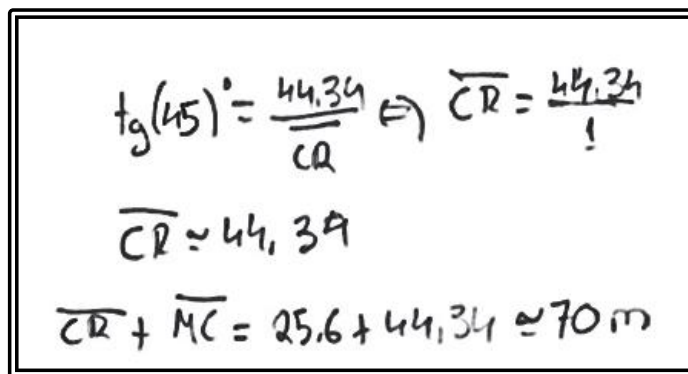 tg(45)° = 44,34 / CR ⇔ CR = 44,34 / 1
CR ≃ 44,34
CR + MC = 25,6 + 44,34 ≃ 70 m